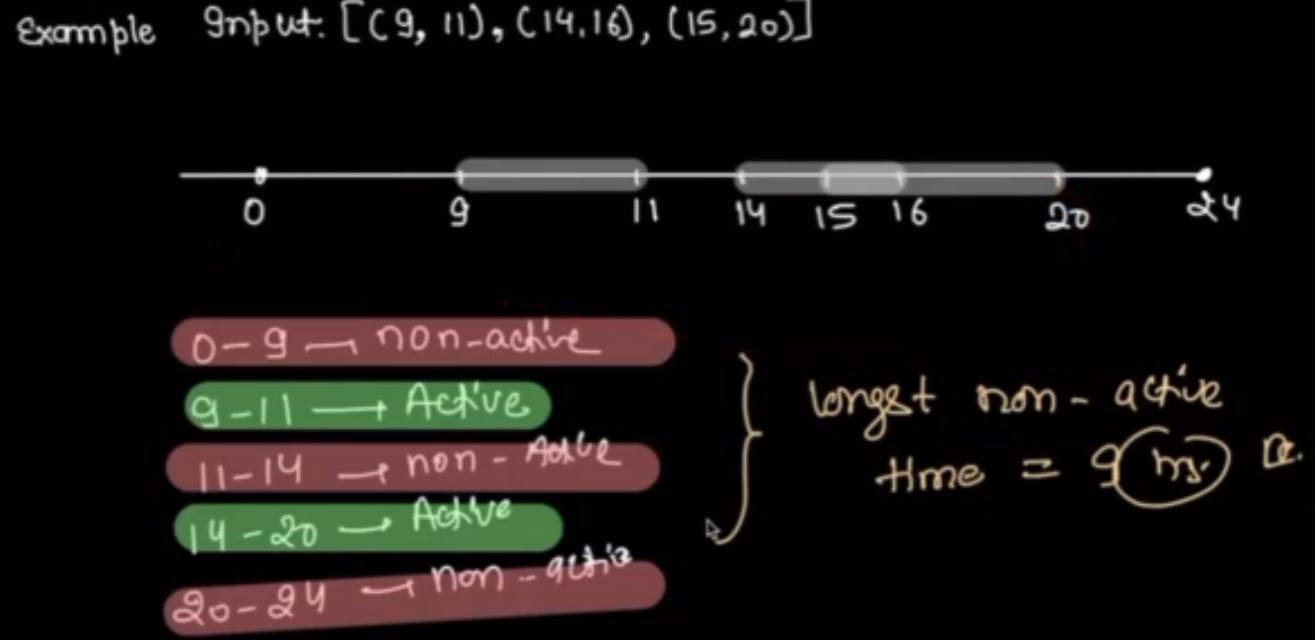 Example Input: [(9, 11), (14,16), (15,20)]
0 9 11 14 15 16 20 24
0-9 — non-active
9-11 → Active
11-14 → non-Active
14-20 → Active
20-24 → non-active
longest non-active
time = 9 hrs.